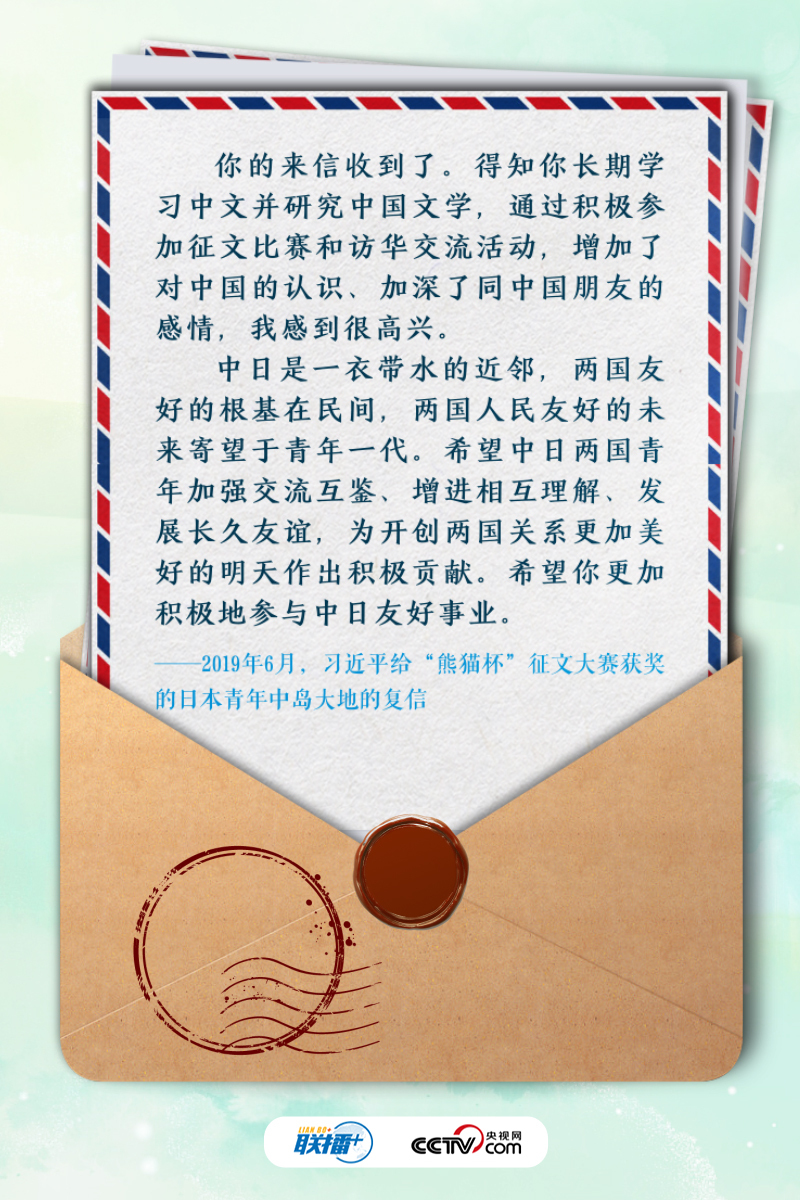 你的来信收到了。得知你长期学
习中文并研究中国文学，通过积极参
加征文比赛和访华交流活动，增加了
对中国的认识、加深了同中国朋友的
感情，我感到很高兴。
中日是一衣带水的近邻，两国友
好的根基在民间，两国人民友好的未
来寄望于青年一代。希望中日两国青
年加强交流互鉴、增进相互理解、发
展长久友谊，为开创两国关系更加美
好的明天作出积极贡献。希望你更加
积极地参与中日友好事业。
——2019年6月，习近平给“熊猫杯”征文大赛获奖
的日本青年中岛大地的复信
LIAN BO+
联播+
CCTV.com 央视网